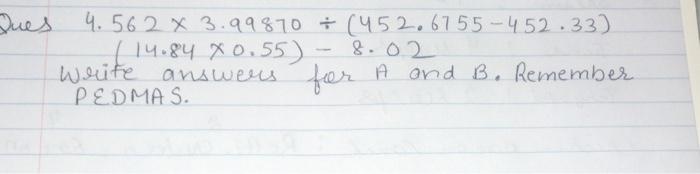 Ques 4.562 × 3.99870 ÷ (452.6755-452.33)
(14.84 × 0.55) - 8.02
Write answers for A and B. Remember
PEDMAS.